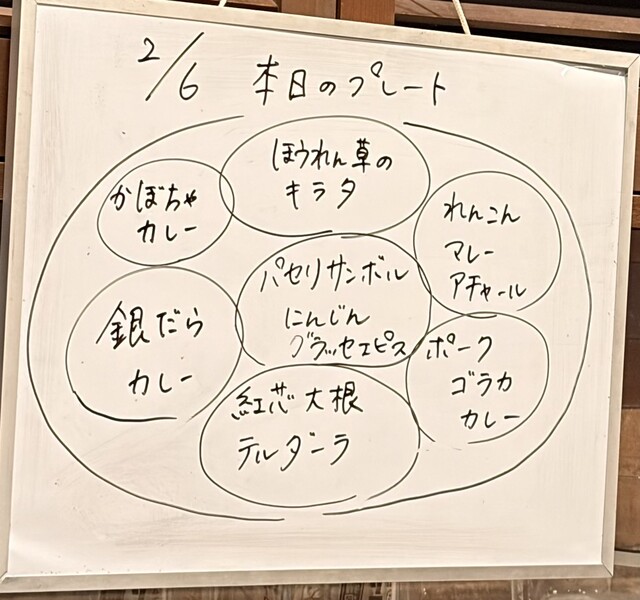 2/6 本日のプレート
ほうれん草の
キラタ
かぼちゃ
カレー
れんこん
マレー
アチャール
パセリサンボル
にんじん
グラッセエピス
銀だら
カレー
ポーク
ゴラカ
カレー
紅芯大根
テルダーラ